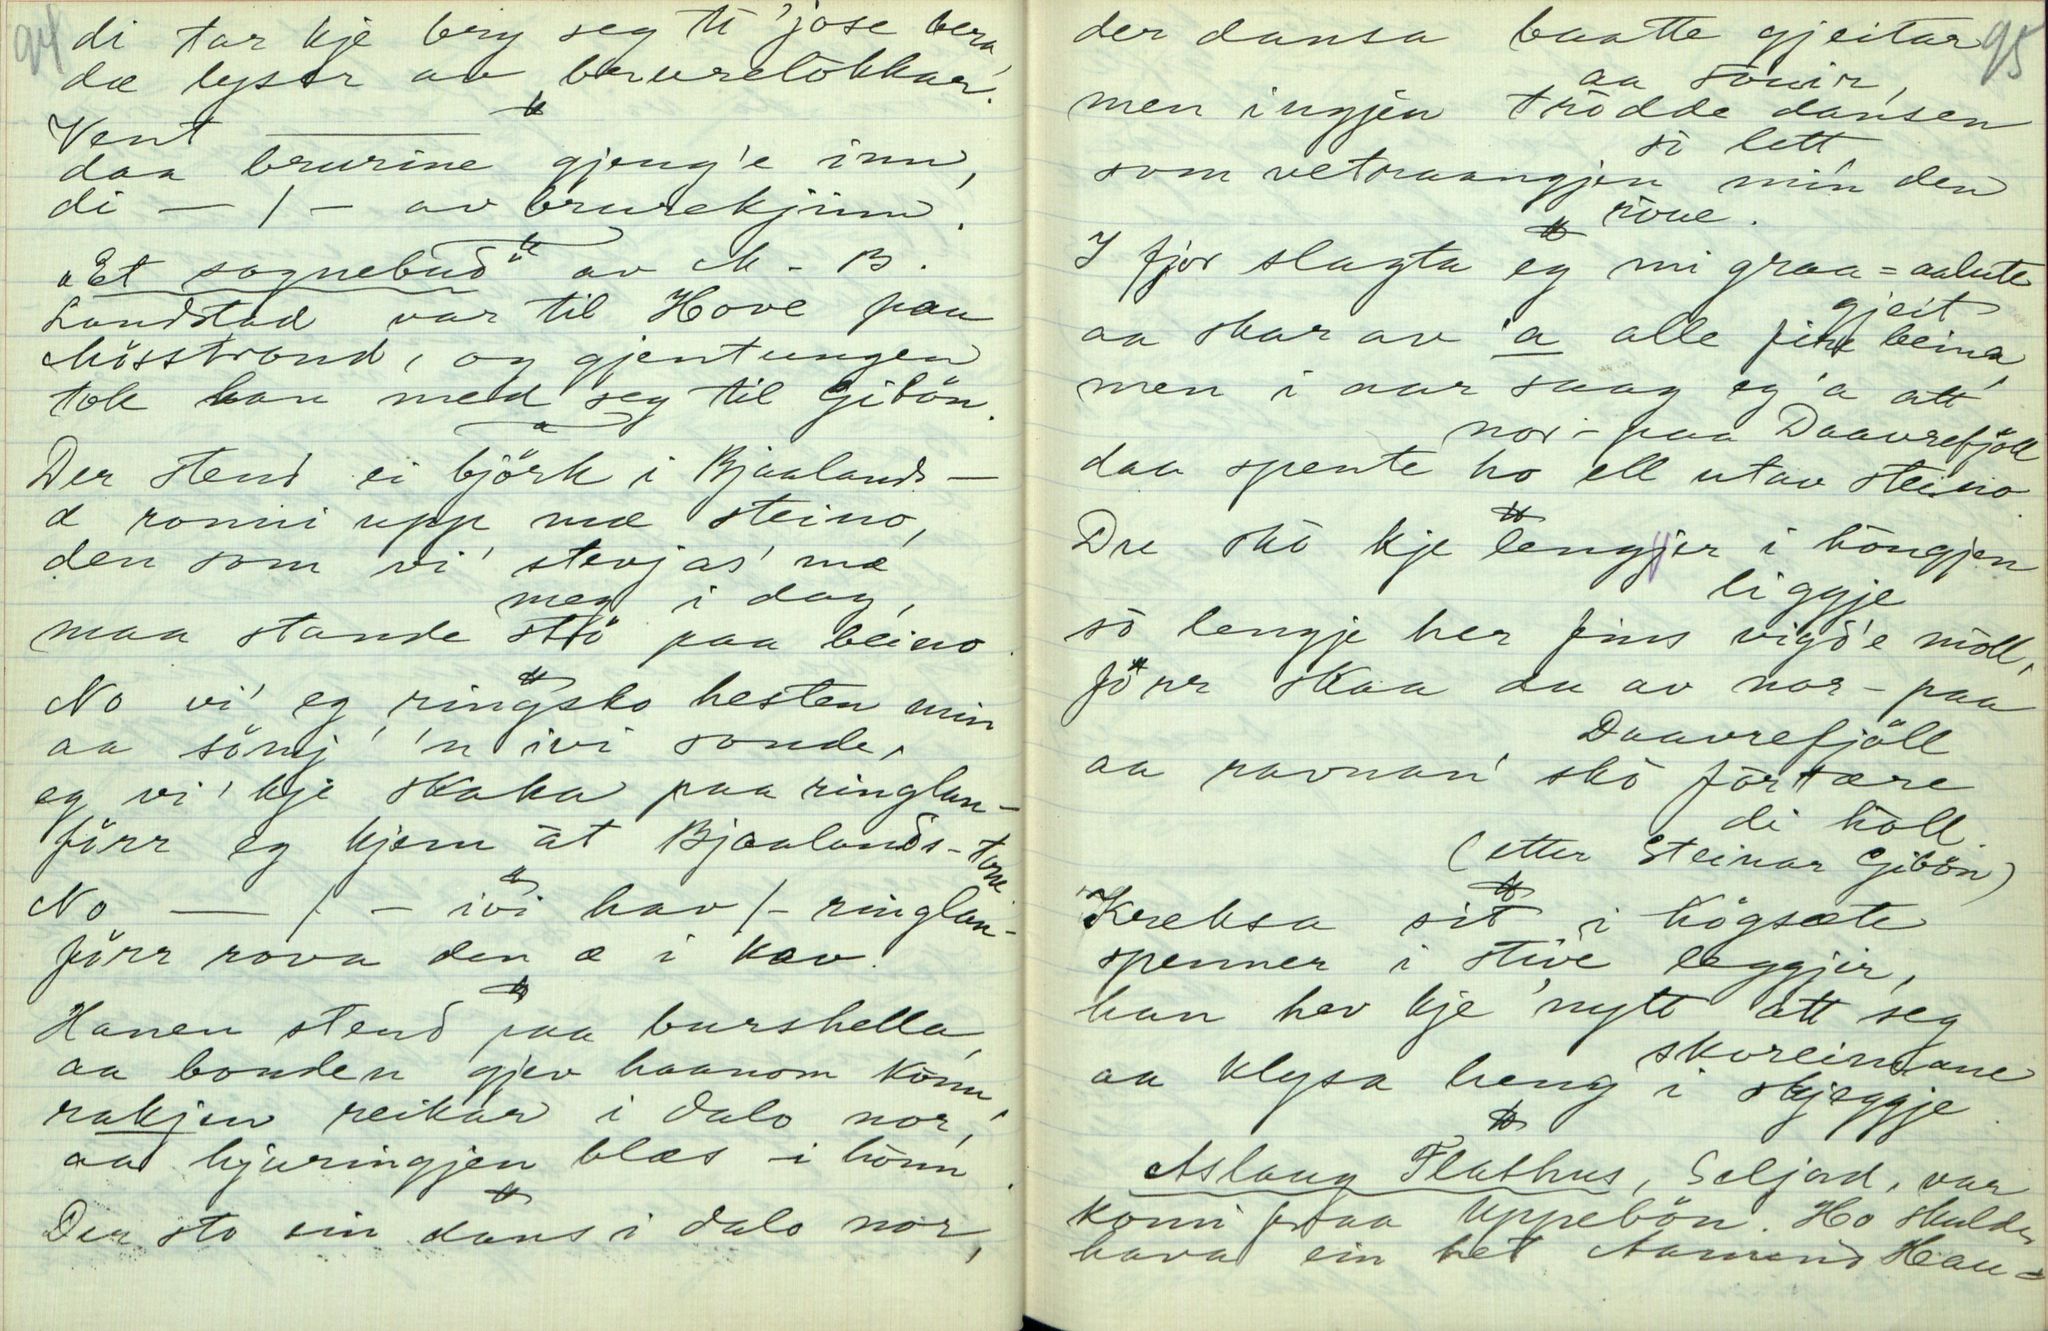 94
di tar kje bry seg ti 'jose bera,
dæ lyser av brurelokkar.
Vent
daa brurine gjeng'e inn,
di — / — av brurekjinn.
"Et sognebud" av M. B.
Landstad var til Hove paa
Mösstrond, og gjentungen
tok han med seg til Gibön.
Der stend ei björk i Bjaalands-
d ronni upp mæ steino,
den som vi' stevjas' mæ
meg i dag,
maa stande stö paa beino.
No vi' eg ringsko hesten min
aa sömj' 'n ivi sonde,
eg vi' kje skaka paa ringlan-
förr eg kjem at Bjaalands-tone
No — / — ivi hav /- ringlan-
förr rova den æ i kav.
Hanen stend paa burshella,
aa bonden gjev haanom konn,
rakjen reikar i dalo nor,
aa hjuringjen blæs i honn.
Der sto ein dans i dalo nor,
95
der dansa baatte gjeitar
aa souir,
men ingjen trödde dansen
so lett
som vetraangjen min den
roue.
I fjor slagta eg mi graa=aalute
gjeit
aa skar av 'a alle fire beina,
men i aar saag eg 'a att
nor-paa Daavrefjöll
daa spente ho ell utav steino.
Du sko kje lengjer i höngjen
liggje
so lengje her fins vigd'e moll,
förr skaa du av nor-paa
Daavrefjöll
aa ravnan' sko fortære
di holl.
(etter Steinar Gibön)
Kreksa sit i högsæte
spenner i stive leggjir,
han hev kje 'nytt att seg
skoreimane
aa klysa heng i skjeggje.
Aslaug Flathus, Seljord, var
komi fraa Uppebön. Ho skulde
hava ein het Aamund Hau=